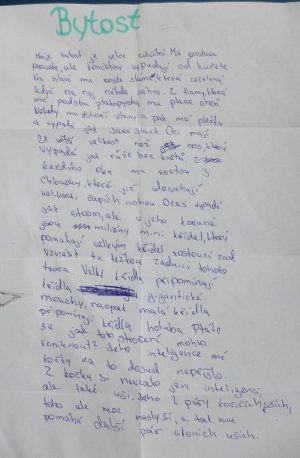 Bytost
Moje bytost je velice zvláštní. Má postavu
pavouka, ale končetiny vypadají od kuřete
Na hlavě mu roste sláma, která zežloutne
když na něj někdo sáhne. Z tlamy, která
má podobu ptakopyska mu plane oheň
Někdy mu shoří vlasy a pak má plešku
a vypadá jak Oči mají
2x větší velikost než nos, který
vypadá jak růže bez květů z
každýho oka mu rostou 3
chloupky, které již dosahují
velikosti čapích nohou Ocas vypadá
jak strom, ale v jeho koruně
jsou miliony mini křídel, který
pomáhají velkým křídel rostoucí zad
vznést tu těžkou zadnici tohoto
tvora. Velké křídla připomínají
křídla gigantické
mouchy, naopak malá křídla
připomínají křídla holuba. Ptáte
se jak toto stvoření mohlo
vzniknout? Jeho inteligence má
kočky na to dosud nepřišlo.
Z kočky si nevzalo jen inteligenci,
ale také uši. Jeho 2 páry kočičích uších,
toho ale moc neslyší, a tak mu
pomáhá další pár sloních uších.